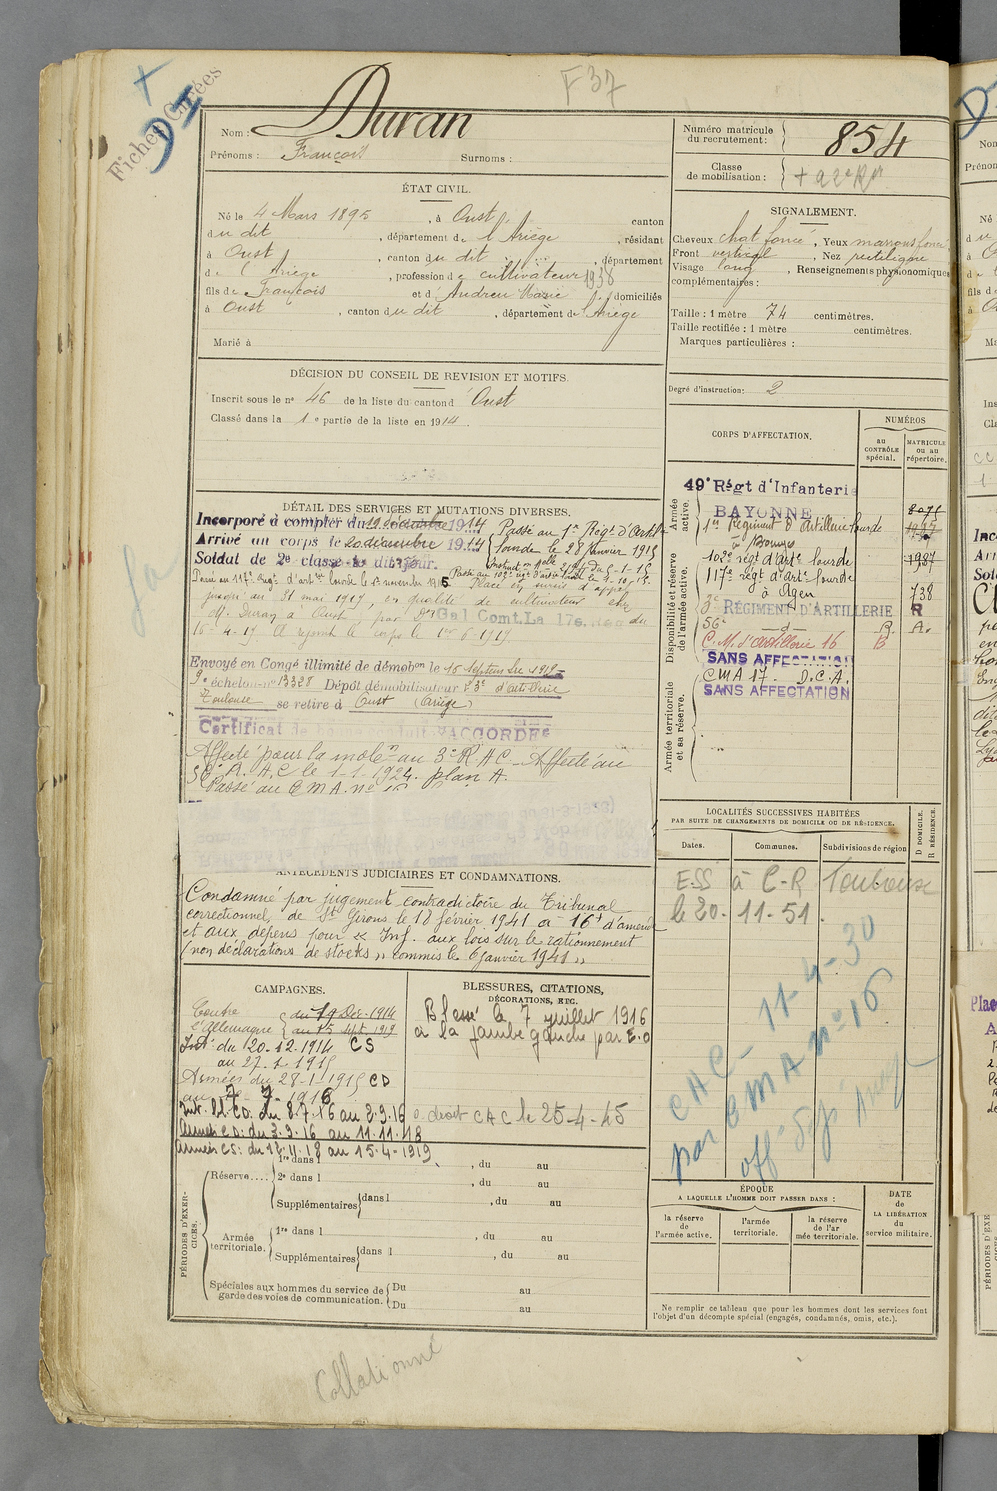 F 37
Fiches Cirées
Nom : Duran
Prénoms : François Surnoms :
Numéro matricule du recrutement : 854
Classe de mobilisation :
ÉTAT CIVIL.
Né le 4 Mars 1895, à Oust, canton
du dit, département de l'Ariège, résidant
à Oust, canton du dit, département
de l'Ariège, profession de cultivateur 1938
fils de François et d' Andreu Marie, domiciliés
à Oust, canton du dit, département de l'Ariège
Marié à
SIGNALEMENT.
Cheveux chat. foncé, Yeux marrons foncé
Front vertical, Nez rectiligne
Visage long, Renseignements physionomiques
complémentaires :
Taille : 1 mètre 74 centimètres.
Taille rectifiée : 1 mètre centimètres.
Marques particulières :
DÉCISION DU CONSEIL DE REVISION ET MOTIFS.
Inscrit sous le n° 46 de la liste du canton d'Oust
Classé dans la 1e partie de la liste en 1914.
Degré d'instruction : 2
CORPS D'AFFECTATION.
NUMÉROS
au CONTRÔLE spécial.
MATRICULE ou au répertoire.
Armée active.
Disponibilité et réserve de l'armée active.
Armée territoriale et sa réserve.
49e Régt d'Infanterie
BAYONNE 8071
1er Régiment d'Artillerie Lourde
à Bourges
102e régt d'arte lourde 1937
117e régt d'arte lourde
à Agen 738
3e RÉGIMENT D'ARTILLERIE R
56e —d— R. A.
C.M. d'artillerie 16 B
SANS AFFECTATION
CMA 17 - D.C.A.
SANS AFFECTATION
DÉTAIL DES SERVICES ET MUTATIONS DIVERSES.
Incorporé à compter du 19 décembre 1914
Arrivé au corps le 20 décembre 1914
Soldat de 2e classe le dit jour.
Passé au 1er Régt d'Artie
lourde le 28 janvier 1915
Passé au 102e régt d'artie lourde le 4-10-15
Passé au 117e Régt d'artie lourde le 1er novembre 1915
Placé en sursis d'appel
jusqu'au 31 mai 1917, en qualité de cultivateur chez
M. Duran à Oust, par Don Gal Comt. La 17e. Région du
16-4-17. A rejoint le corps le 1er-6-1917
Envoyé en Congé illimité de démobon le 15 septembre 1919
9e échelon n° 13328 Dépôt démobilisateur 23e d'artillerie
Toulouse se retire à Oust (Ariège)
Certificat de bonne conduite ACCORDÉ
Affecté pour la mobon au 3e R.A.C. Affecté au
56e R.A.C le 1-1-1924. plan A.
Passé au C M A. n° 16
ANTÉCÉDENTS JUDICIAIRES ET CONDAMNATIONS.
Condamné par jugement contradictoire du Tribunal
correctionnel de St Girons le 18 février 1941 à 16f d'amende
et aux dépens pour " Inf. aux lois sur le rationnement
(non déclarations de stocks) " commis le 6 janvier 1941 "
LOCALITÉS SUCCESSIVES HABITÉES
PAR SUITE DE CHANGEMENTS DE DOMICILE OU DE RÉSIDENCE.
Dates.
Communes.
Subdivisions de région
D DOMICILE. R RÉSIDENCE.
ESS à C-R Toulouse
le 20-11-51.
CAC - 11-4-30
par CMA n° 16
CAMPAGNES.
Contre l'Allemagne du 19 Déc. 1914
au 15 sept. 1919
Int. du 20.12.1914 CS
au 27-1-1915
Armées du 28-1-1915 CD
au 7-7-1916
Int. bl. CD. du 8.7.16 au 2.9.16
Armées CD: du 3.9.16 au 11.11.18
Armées CS: du 12.11.18 au 15.4.1919
BLESSURES, CITATIONS, DÉCORATIONS, ETC.
Blessé le 7 juillet 1916
à la jambe gauche par E.O
a droit CAC le 25-4-45
PÉRIODES D'EXERCICES.
Réserve.... 1re dans l , du au
2e dans l , du au
Supplémentaires dans l , du au
Armée territoriale. 1re dans l , du au
Supplémentaires dans l , du au
Spéciales aux hommes du service de garde des voies de communication. Du au
Du au
ÉPOQUE
A LAQUELLE L'HOMME DOIT PASSER DANS :
la réserve de l'armée active.
l'armée territoriale.
la réserve de l'armée territoriale.
DATE de LA LIBÉRATION du service militaire.
Ne remplir ce tableau que pour les hommes dont les services font
l'objet d'un décompte spécial (engagés, condamnés, omis, etc.).
Collationné